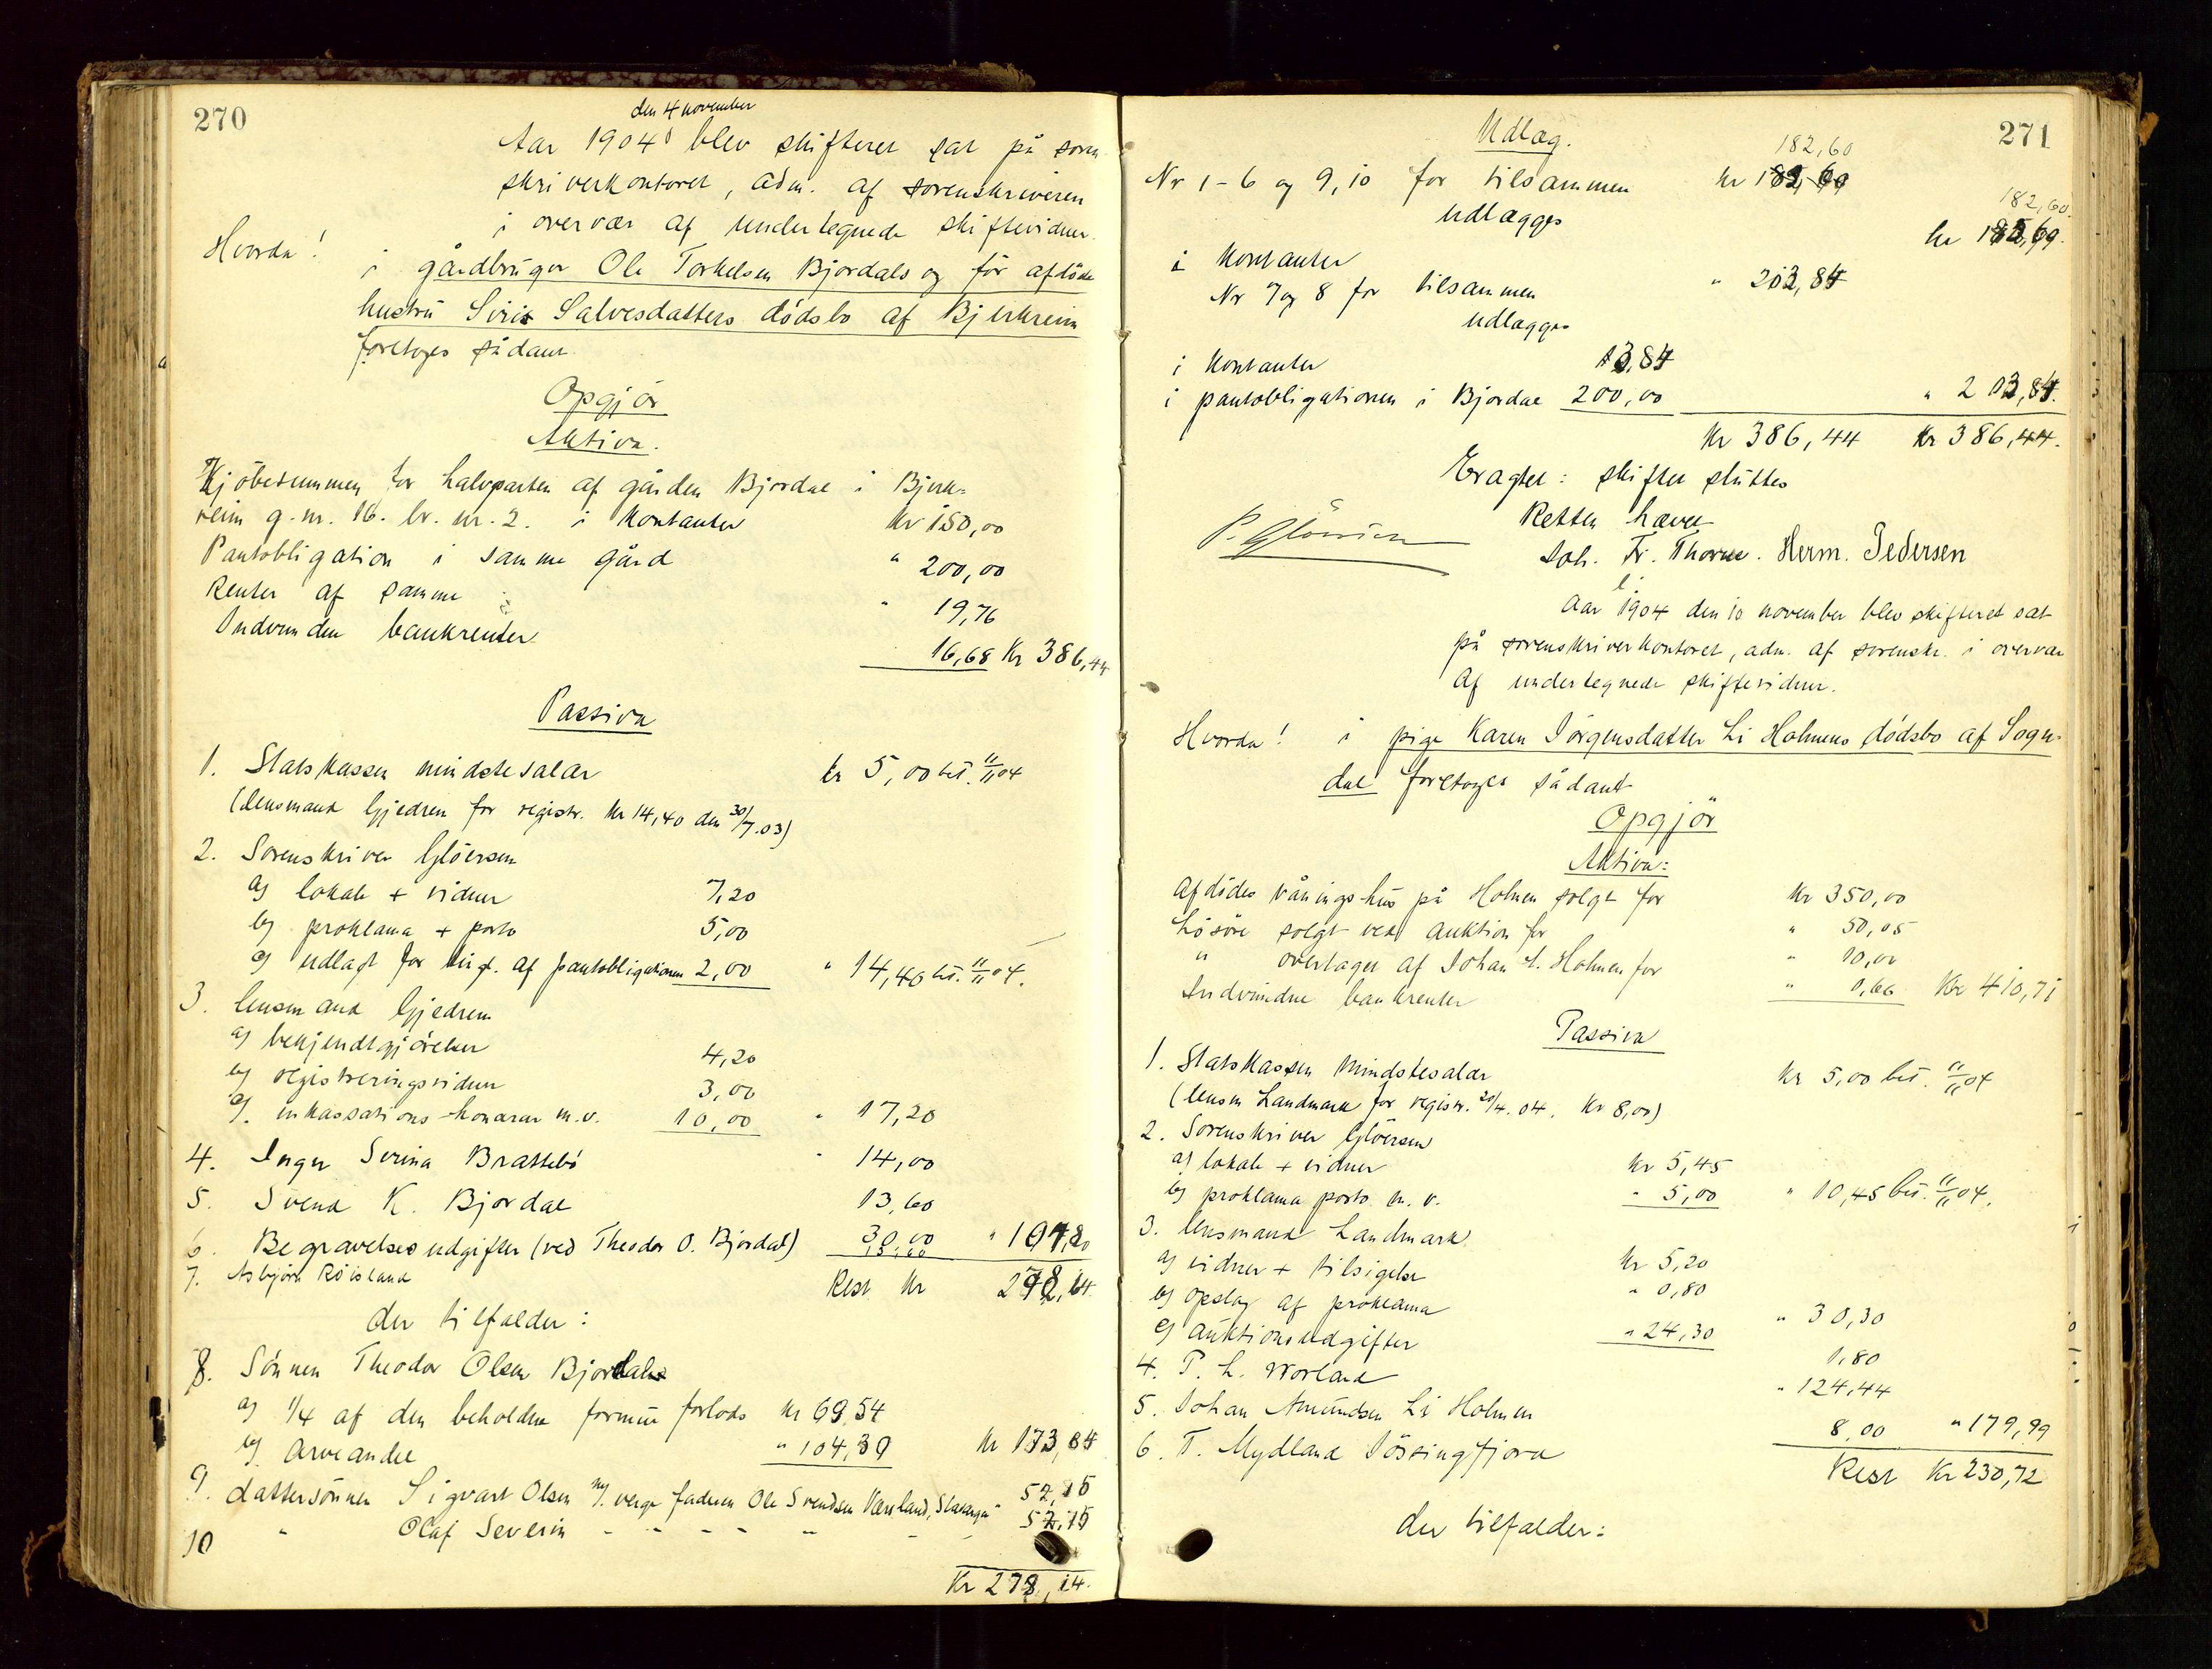 270
den 4 november
Aar 1904 blev skifteret sat på soren
skriverkontoret, adm. af sorenskriveren
i overvær af undertegnede skiftevidner.
Hvorda!
i gårdbruger Ole Torkelsen Bjordals og før afdöde
hustru Siris Salvesdatters dödsbo af Bjerkreim
foretoges sådant
Opgjör
Aktiva.
Kjöbesummen for halvparten af gården Bjordal i Bjerk-
reim g.nr. 16. br. nr. 2. i kontanter kr 150,00
Pantobligation i samme gård " 200,00
Renter af samme " 19,76
Indvundne bankrenter 16,68 Kr 386,44
Passiva
1. Statskassen mindstesalær kr 5,00 bet. 11/11 04
(lensmand Gjedrem for registr. kr 14,40 den 30/7.03)
2. Sorenskriver Glöersen
a) lokale + vidner 7,20
b) proklama + porto 5,00
c) udlagt for tingl. af pantobligationen 2,00 " 14,40 bet. 11/11 04.
3. lensmand Gjedrem
a) bekjendtgjörelser 4,20
b) registreringsvidner 3,00
c). inkassations-honorar m.v. 10,00 " 17,20
4. Inger Serina Brattebö " 14,00
5. Svend K. Bjordal 13,60
6. Begravelsesudgifter (ved Theodor O. Bjordal) 30,00 " 10
7. Asbjörn Röisland Rest Kr 2
der tilfalder:
8. Sönnen Theodor Olsen Bjordal
a) 1/4 af den beholdne formue forlods kr 69,54
b) Arveandel " 104,30 kr 173,84
9. dattersönnen Sigvart Olsen m/. verge faderen Ole Svendsen Værsland, Stavanger 52,15
10 " Olaf Severin - - - - " - 52,15
Kr 278,14.
271
Udlæg.
182,60
Nr 1-6 og 9,10 for tilsammen kr 182,60
udlægges
182,60.
i kontanter kr 182,60.
Nr 7 og 8 for tilsammen " 203,84
udlægges
i kontanter 3,84
i pantobligationen i Bjordal 200,00 " 203,84.
Kr 386,44 Kr 386,44.
Eragtet: skiftet sluttes
Retten hævet
P. Glöersen
Joh. Fr. Thorne. Herm. Pedersen
Aar 1904 den 10 november blev skifteret sat
på sorenskriverkontoret, adm. af sorenskr. i overvær
af undertegnede skiftevidner.
Hvorda! i pige Karen Jörgensdatter Li Holmens dödsbo af Sogn-
dal foretoges sådant
Opgjör
Aktiva:
Afdödes våningshus på Holmen solgt for kr 350,00
Lösöre solgt ved auktion for " 50,05
" overtaget af Johan A. Holmen for " 10,00
Indvundne bankrenter " 0,66 Kr 410,71
Passiva
1. Statskassen mindstesalær kr 5,00 bet. 11/11 04
(lensm Landmark for registr. 20/4.04. kr 8,00)
2. Sorenskriver Glöersen
a) lokale + vidner kr 5,45
b) proklama porto m. v. " 5,00 " 10,45 bet. 11/11 04.
3. lensmand Landmark
a) vidner + tilsigelse kr 5,20
b) opslag af proklama " 0,80
c) auktionsudgifter " 24,30 " 30,30
4. P. L. Worland 1,80
5. Johan Amundsen Li Holmen " 124,44
6. T. Mydland Jössingfjord 8,00 " 179,99
Rest Kr 230,72
der tilfalder: